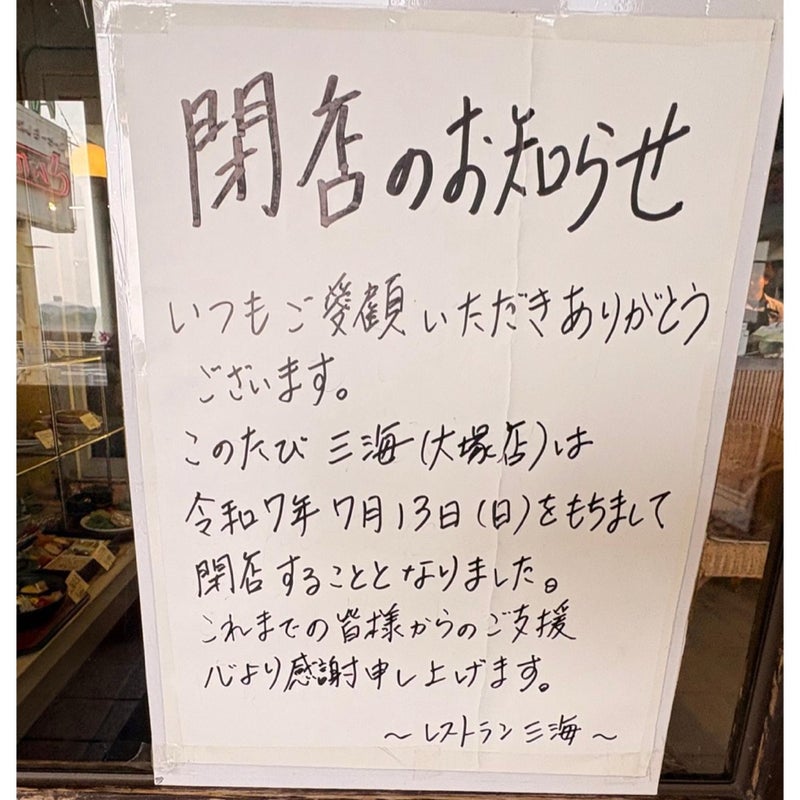 閉店のお知らせ
いつもご愛顧いただきありがとう
ございます。
このたび 三海(大塚店)は
令和7年 7月13日(日)をもちまして
閉店することとなりました。
これまでの皆様からのご支援
心より感謝申し上げます。
〜レストラン三海〜